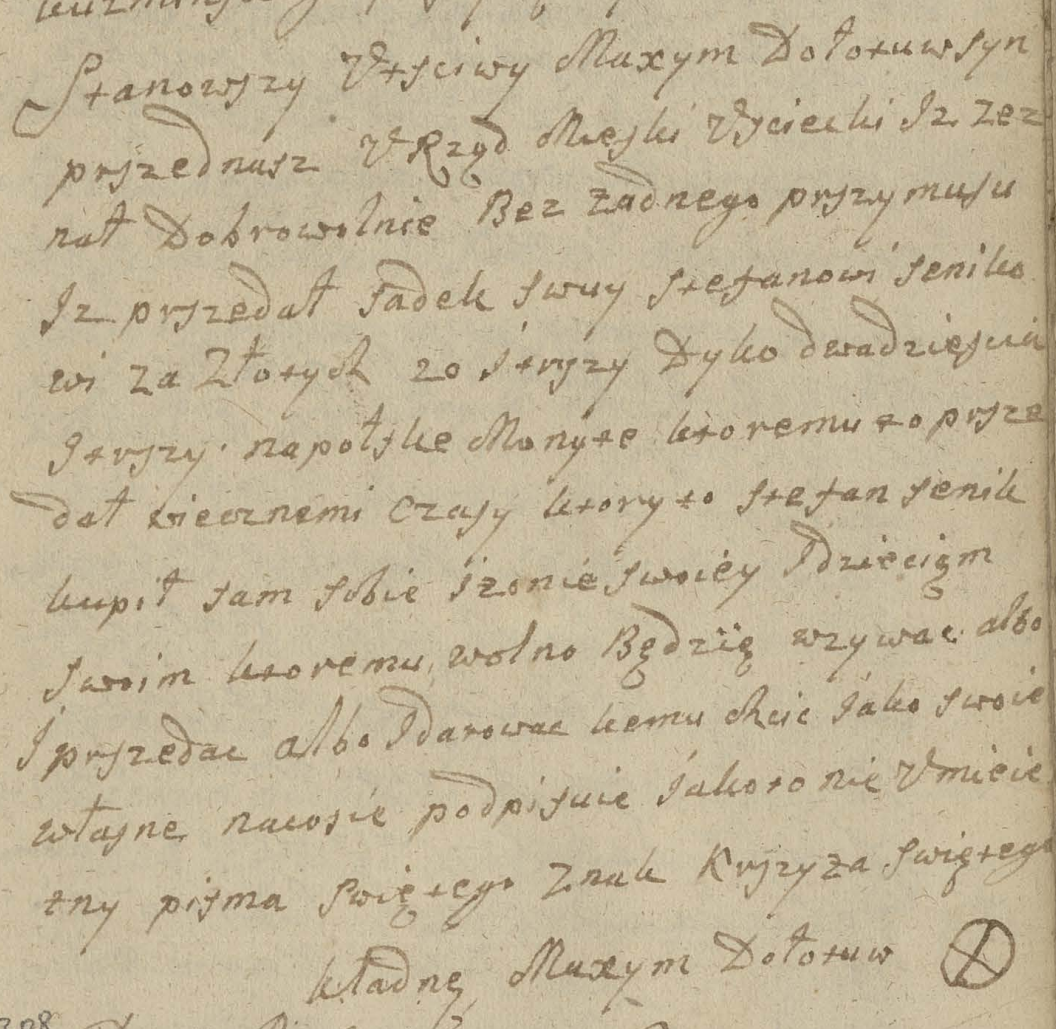 Stanowszy Vtsciwy Maxym Dołotuw syn
prszednasz VRząd Mieyski Vysciecki Iz zez
nał Dobrowolnie Bez żadnego prszymusu
Iz prszedał sadek swuy stefanowi seniko
wi za Złotych 20 i trszy Dyko dwadziescia
i trszy napolske Monyte ktoremu to prsze
dał wiecznemi Czasy ktory to stefan senik
kupił sam sobie i zonie swoiey I dzieciąm
swoim ktoremu wolno Będzię wzywac albo
i prszedac albo I darowac kemu chcic iako swoie
własne nacosie podpisuie iako to nie Vmieie
tny pisma Swiętego Znak Krszyża swiętego
kładnę Maxym Dołotuw